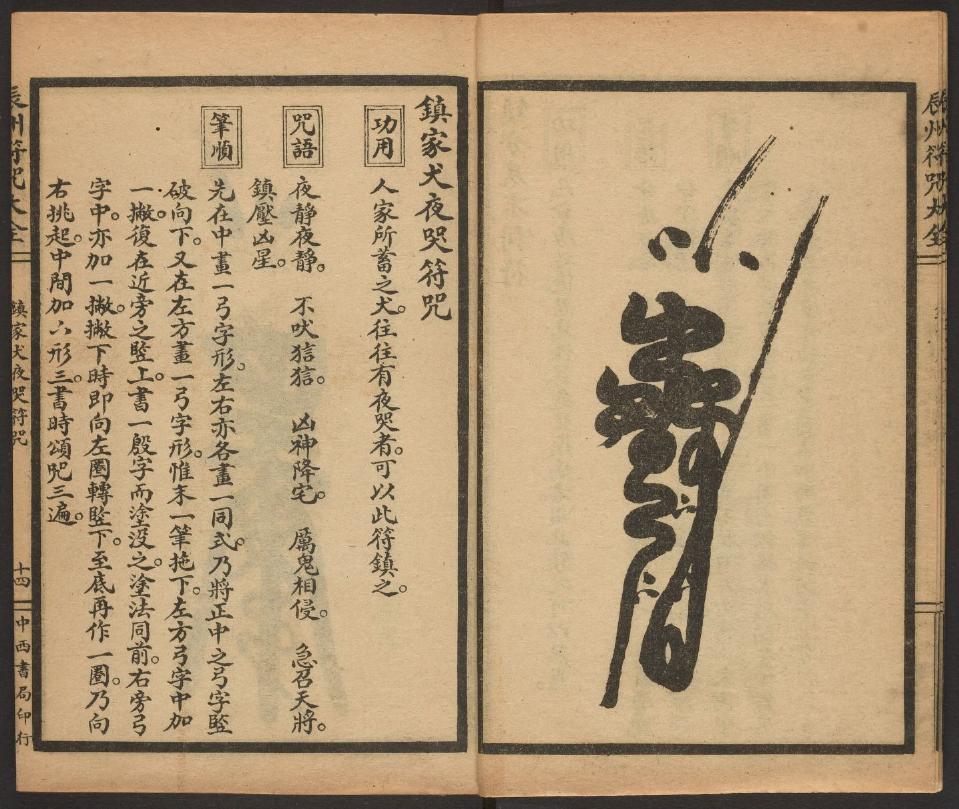 辰州符咒大全
鎮家犬夜哭符咒
功用
人家所蓄之犬。往往有夜哭者。可以此符鎮之。
咒語
夜靜夜靜。 不吠狺狺。 凶神降宅。 厲鬼相侵。 急召天將。
鎮壓凶星。
筆順
先在中畫一弓字形。左右亦各畫一同式。乃將正中之弓字豎
破向下。又在左方畫一弓字形。惟末一筆拖下。左方弓字中加
一撇。復在近旁之豎上。書一殷字而塗沒之。塗法同前。右旁弓
字中。亦加一撇。撇下時即向左圈轉豎下。至底再作一圈。乃向
右挑起。中間加㇒丶形三。書時頌咒三遍。
辰州符咒大全
鎮家犬夜哭符咒
十四
中西書局印行